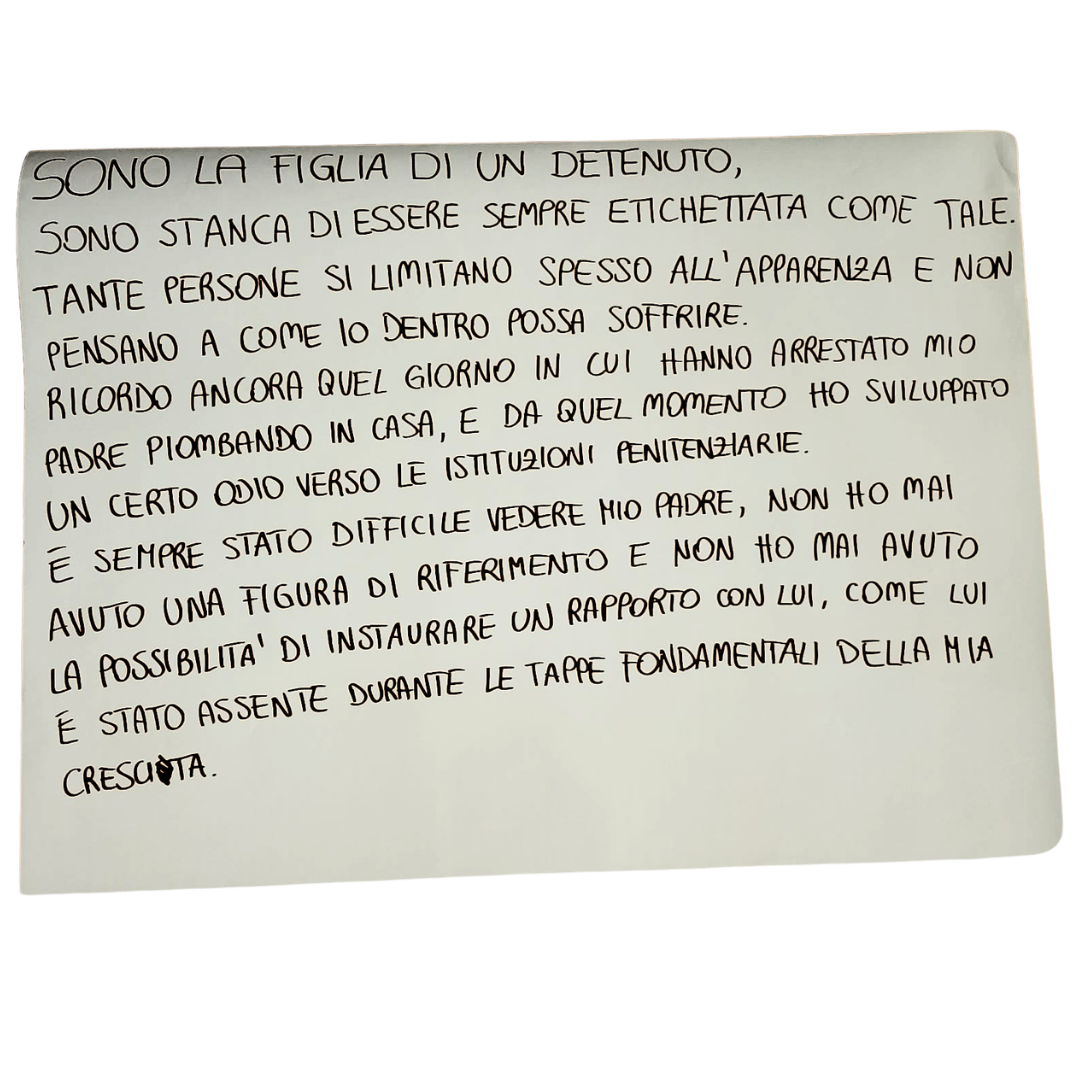 SONO LA FIGLIA DI UN DETENUTO,
SONO STANCA DI ESSERE SEMPRE ETICHETTATA COME TALE.
TANTE PERSONE SI LIMITANO SPESSO ALL'APPARENZA E NON
PENSANO A COME IO DENTRO POSSA SOFFRIRE.
RICORDO ANCORA QUEL GIORNO IN CUI HANNO ARRESTATO MIO
PADRE PIOMBANDO IN CASA, E DA QUEL MOMENTO HO SVILUPPATO
UN CERTO ODIO VERSO LE ISTITUZIONI PENITENZIARIE.
É SEMPRE STATO DIFFICILE VEDERE MIO PADRE, NON HO MAI
AVUTO UNA FIGURA DI RIFERIMENTO E NON HO MAI AVUTO
LA POSSIBILITA' DI INSTAURARE UN RAPPORTO CON LUI, COME LUI
É STATO ASSENTE DURANTE LE TAPPE FONDAMENTALI DELLA MIA
CRESCITA.